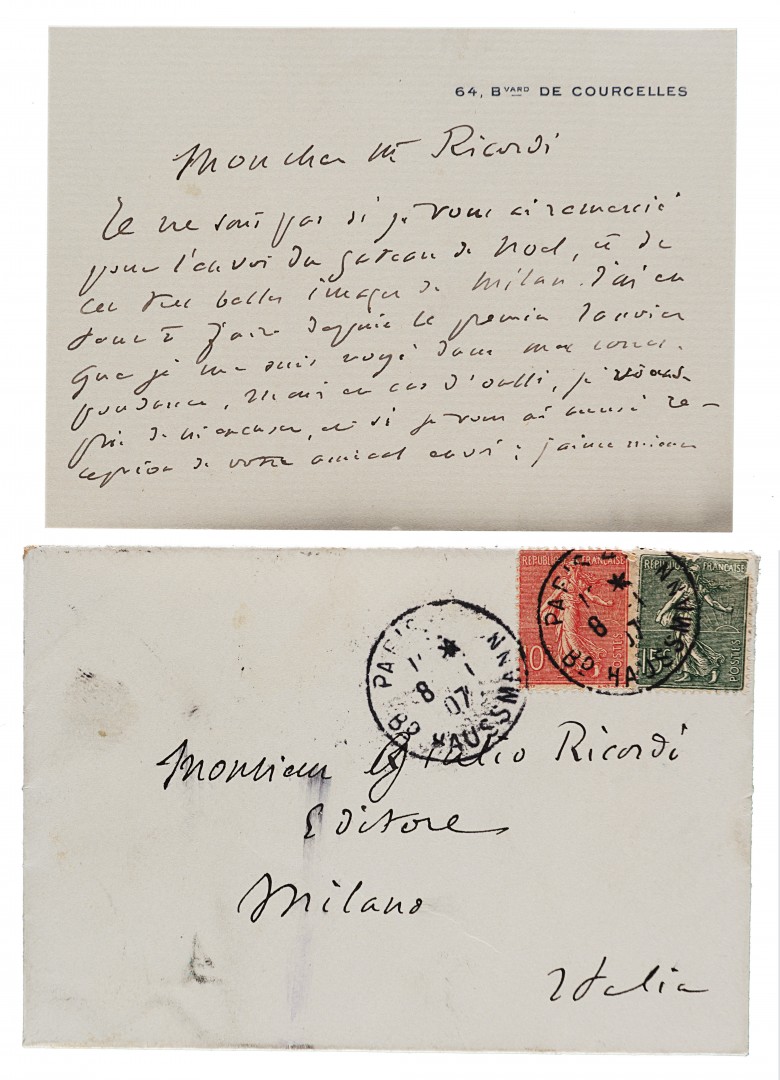 64, BVARD DE COURCELLES
Mon cher Mr Ricordi
Je ne sais pas si je vous ai remercié
pour l'envoi du gateau de Noël, et de
ces très belles images de Milan. J'ai eu
tant à faire depuis le premier Janvier
que je me suis noyé dans ma corres-
pondance, mais en cas d'oubli, je
prie de m'excuser, et si je vous ai accusé ré-
ception de votre amical envoi ; j'aime mieux
REPUBLIQUE FRANÇAISE
10
POSTES
REPUBLIQUE FRANÇAISE
15c
POSTES
PARIS
8 -1
07
BD HAUSSMANN
PARIS
8 -1
07
BD HAUSSMANN
Monsieur Giulio Ricordi
Editore
Milano
Italia